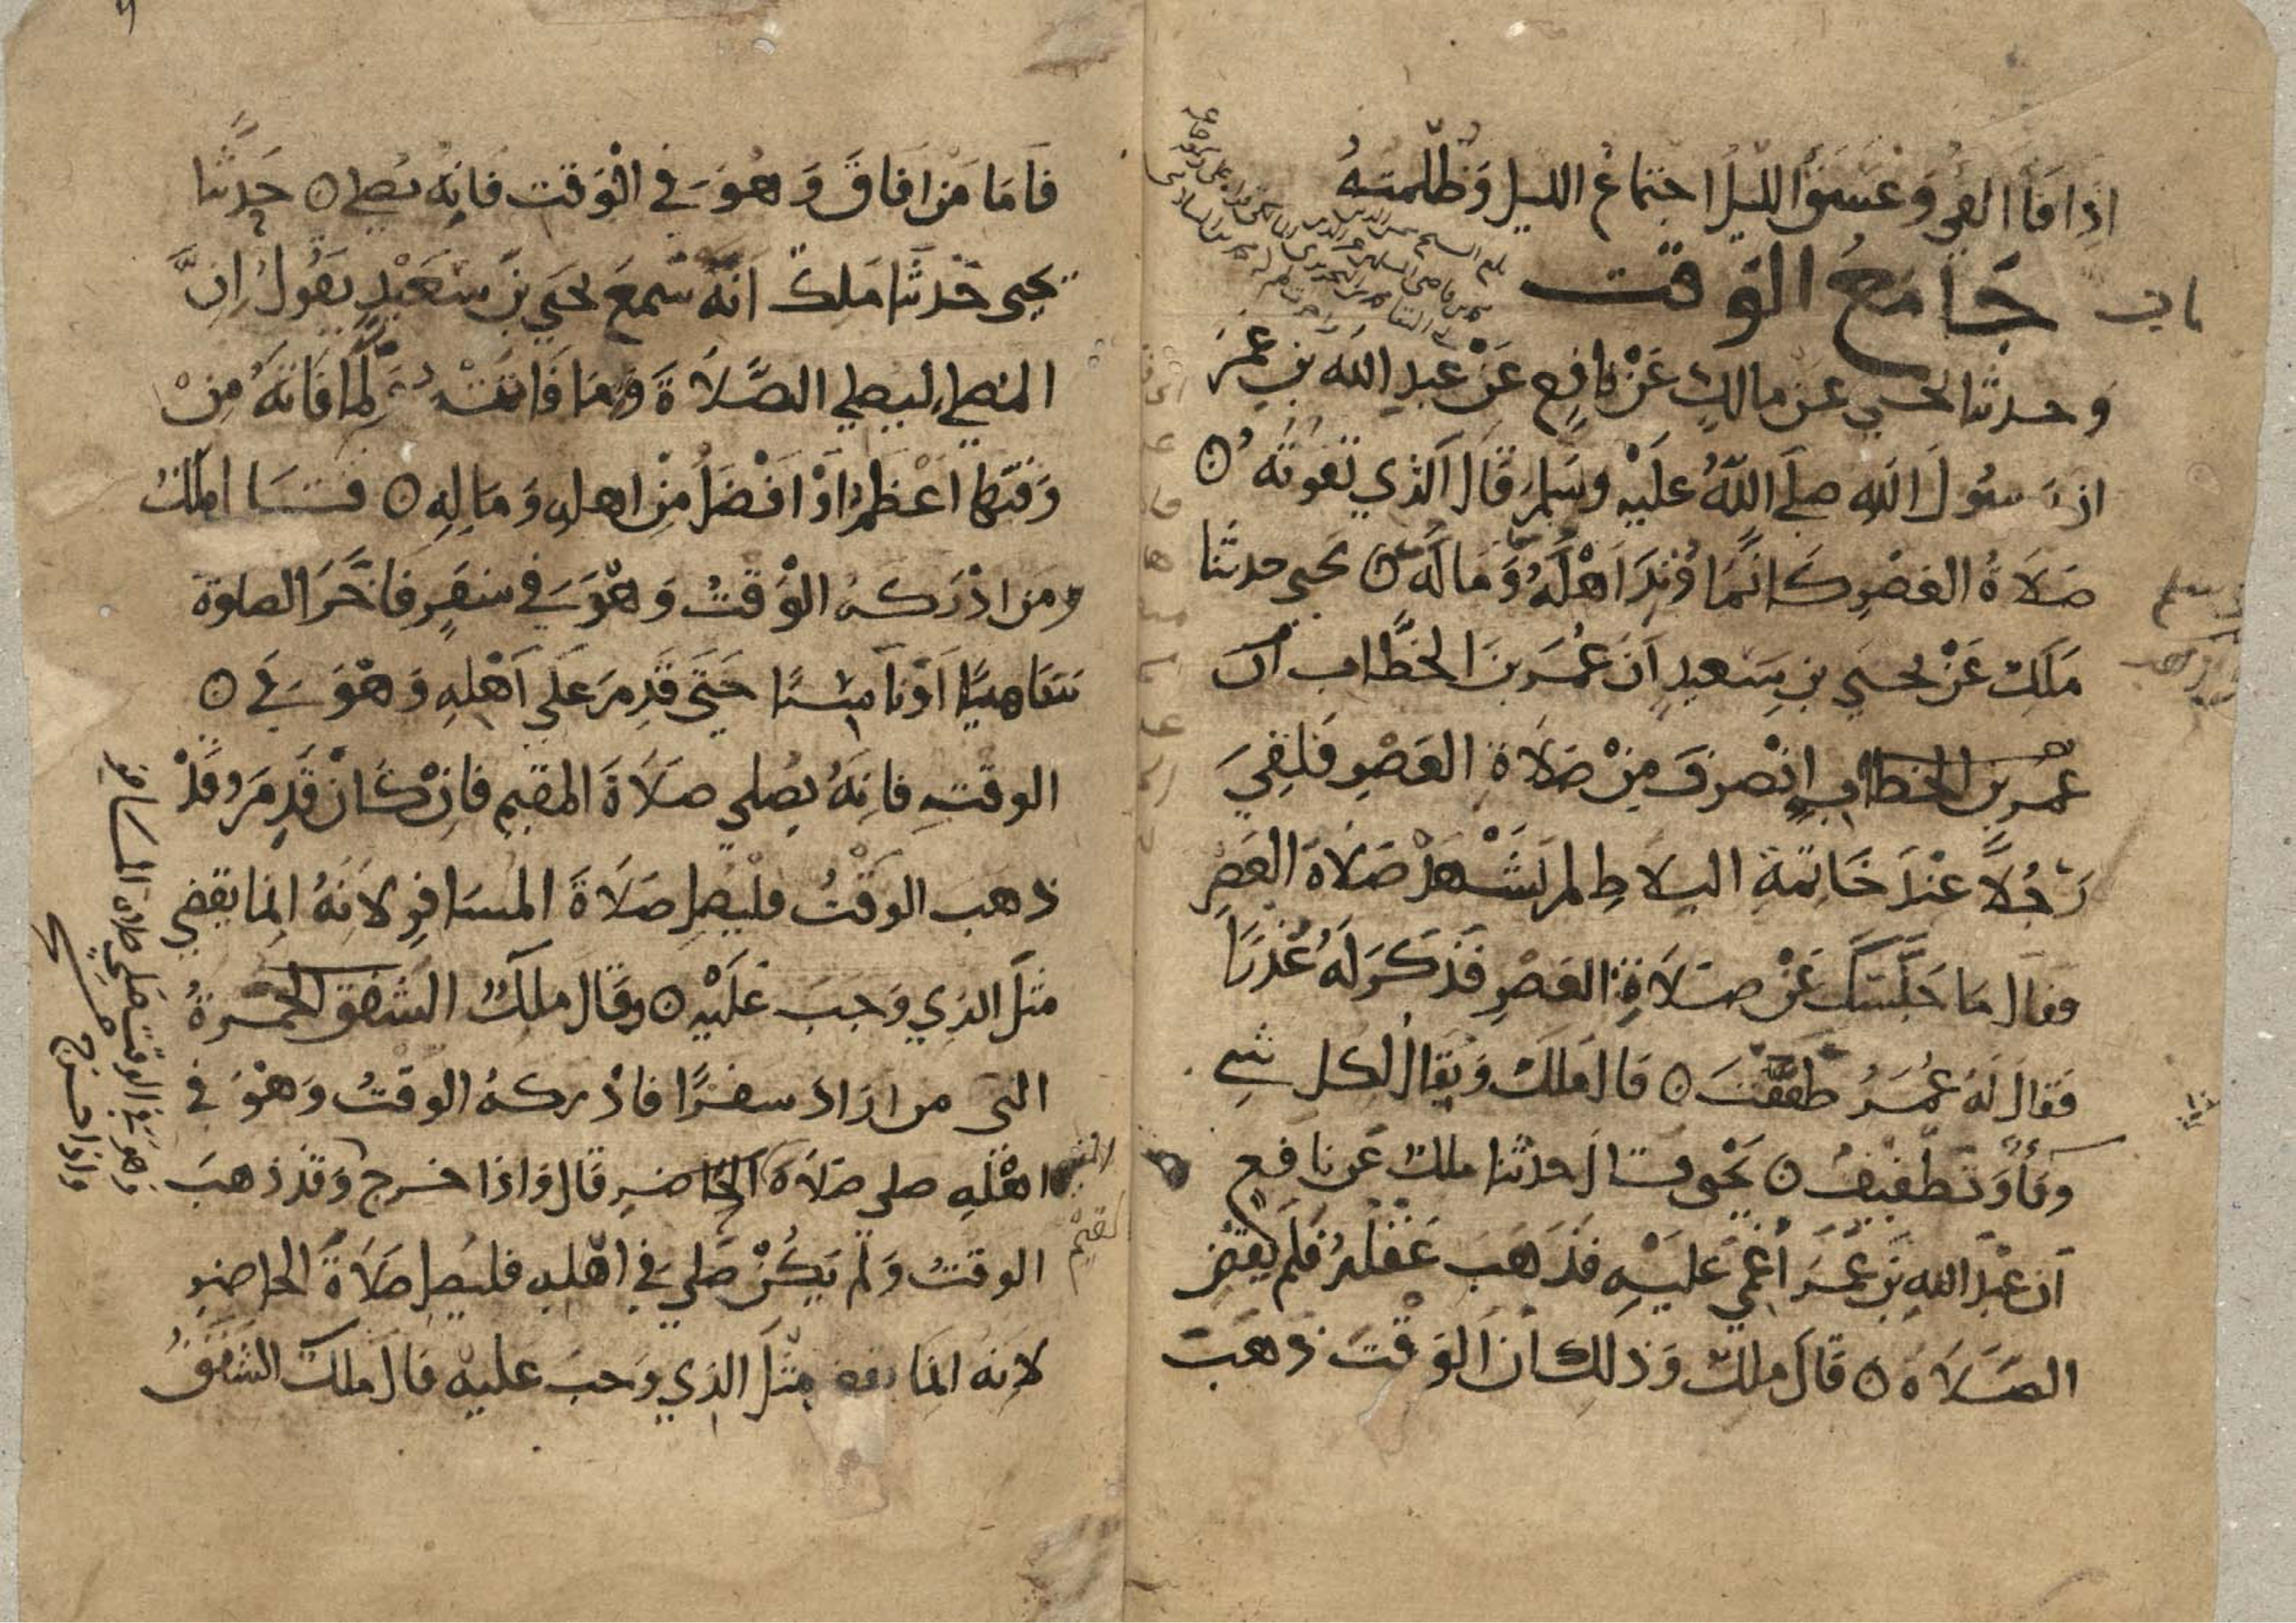 اذا فآ الفي وغسق الليل اجتماع الليل وظلمته
باب جامع الوقت
وحدثنا يحيى عن مالك عن نافع عن عبد الله بن عمر
ان رسول الله صلى الله عليه وسلم قال الذي تفوته
صلاة العصر كانما وتر اهله وماله يحيى حدثنا
ملك عن يحيى بن سعيد ان عمر بن الخطاب ان
عمر بن الخطاب انصرف من صلاة العصر فلقي
رجلا عند خاتمة البلاط لم يشهد صلاة العصر
فقال ما حبسك عن صلاة العصر فذكر له عذرا
فقال له عمر طففت قال ملك ويقال لكل شي
وفآ وتطفيف يحيى قال حدثنا ملك عن نافع
ان عبد الله بن عمر اغمي عليه فذهب عقله فلم يقض
الصلاة قال ملك وذلك ان الوقت ذهب
فاما من افاق وهو في الوقت فانه يصلي حدثنا
يحيى حدثنا ملك انه سمع يحيى بن سعيد يقول ان
المصلي ليصلي الصلاة وما فاتته ولما فاته من
وقتها اعظم او افضل من اهله وماله قال ملك
ومن ادركه الوقت وهو في سفر فاخر الصلوة
ساهيا او ناسيا حتى قدم على اهله وهو في
الوقت فانه يصلي صلاة المقيم فان كان قدم وقد
ذهب الوقت فليصل صلاة المسافر لانه انما يقضي
مثل الذي وجب عليه وقال ملك الشفق الحمرة
التي من اراد سفرا فادركه الوقت وهو في
اهله صلى صلاة الحاضر قال واذا خرج وقد ذهب
الوقت ولم يكن صلى في اهله فليصل صلاة الحاضر
لانه انما يقضي مثل الذي وجب عليه قال ملك الشفق
المقيم
واذا خرج
وهو في الوقت صلى صلاة المسافر